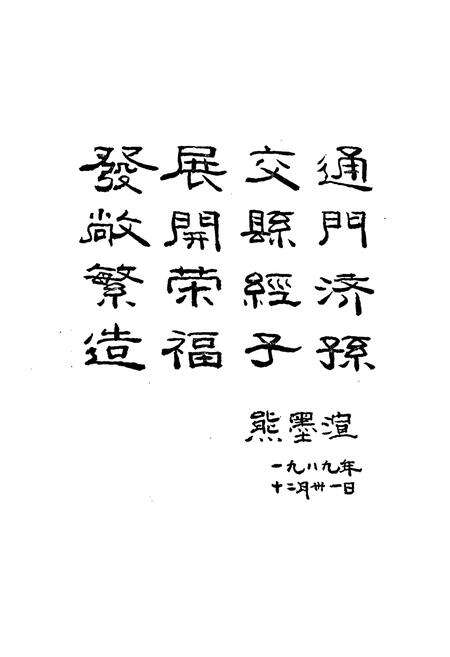 發展交通
敞開縣門
繁荣經济
造福子孫
熊墨渲
一九八九年
十二月卅一日